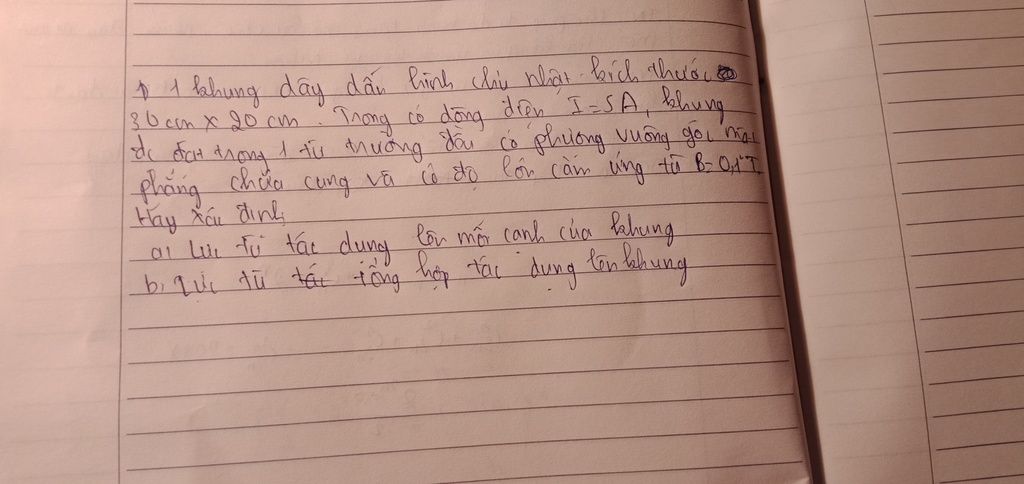 1 khung dây dẫn hình chữ nhật kích thước
30cm x 20 cm. Trong có dòng điện I=5A, khung
đc đặt trong 1 từ trường đều có phương vuông góc
phẳng chứa cung và có độ lớn cảm ứng từ B=0,1T.
Hãy xác định
a, Lực từ tác dụng lên mỗi cạnh của khung
b, Lực từ tác tổng hợp tác dụng lên khung